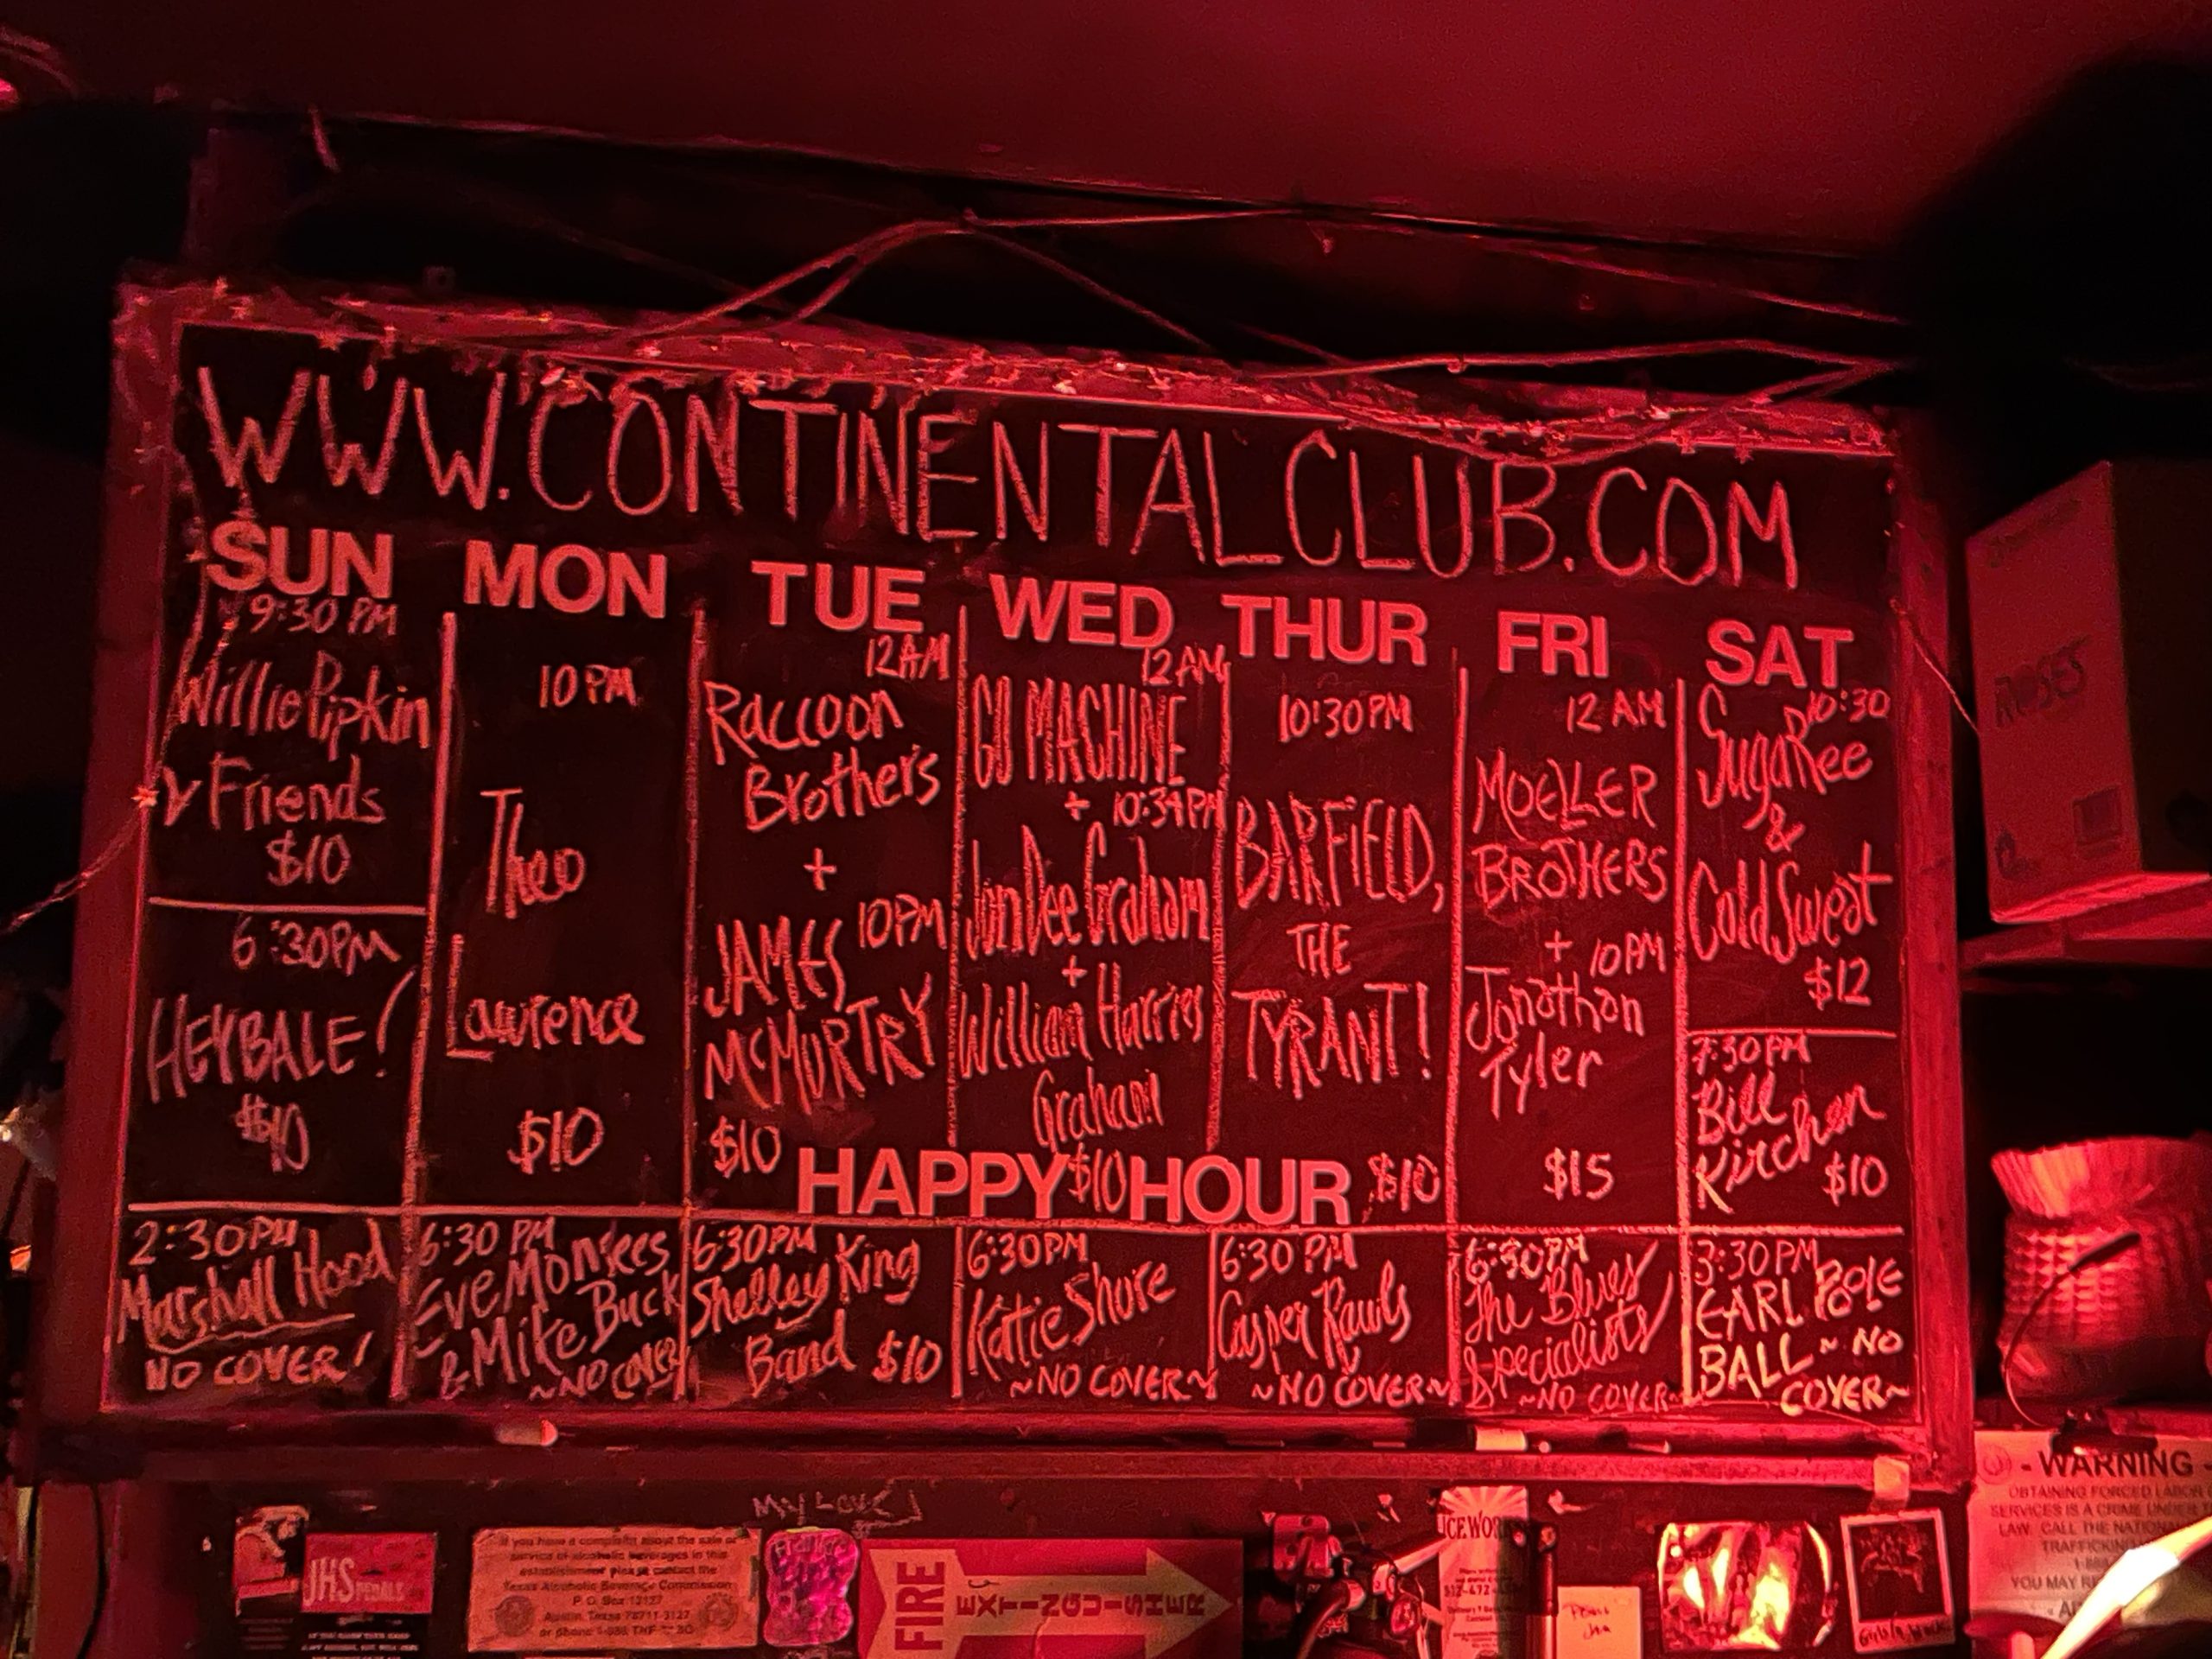 WWW.CONTINENTALCLUB.COM
SUN
9:30 PM
Willie Pipkin
Friends
$10
6:30PM
HEYBALE!
$10
2:30PM
Marshall Hood
NO COVER!
MON
10PM
Theo
Lawrence
$10
6:30 PM
Eve Monsees
& Mike Buck
~NO COVER
TUE
12AM
Raccoon
Brothers
+
10PM
JAMES
MCMURTRY
$10
6:30PM
Shelley King
Band $10
WED
12AM
GO MACHINE
+ 10:34PM
Jon Dee Graham
+
William Harries
Graham
$10
6:30PM
Katie Shore
~NO COVER~
THUR
10:30PM
BARFIELD,
THE
TYRANT!
$10
6:30 PM
Casper Rawls
~NO COVER~
FRI
12 AM
MOELLER
BROTHERS
+ 10PM
Jonathan
Tyler
$15
6:30PM
The Blues
Specialists
~NO COVER~
SAT
10:30
SugaRee
&
Cold Sweat
$12
7:30PM
Bill
Kirchen
$10
3:30PM
EARL POOLE
BALL ~NO
COVER~
HAPPY HOUR
My Love
JHS PEDALS
If you have a complaint about the sale or
service of alcoholic beverages in this
establishment please contact the
Texas Alcoholic Beverage Commission
P.O. Box 13127
Austin, Texas 78711-3127
or phone
FIRE
EXTINGUISHER
ROSES
- WARNING -
OBTAINING FORCED LABOR
SERVICES IS A CRIME UNDER
LAW. CALL THE NATIONAL
TRAFFICKING
YOU MAY